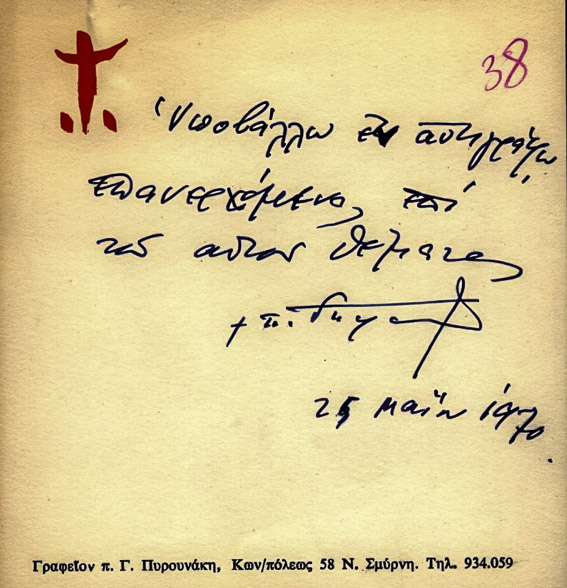 38
Ὑποβάλλω ἐν ἀντιγράφῳ,
ἐπανερχόμενος, ἐπὶ
τοῦ αὐτοῦ θέματος
+ π.
25 Μαΐου 1970.
Γραφεῖον π. Γ. Πυρουνάκη, Κων/πόλεως 58 Ν. Σμύρνη. Τηλ. 934.059